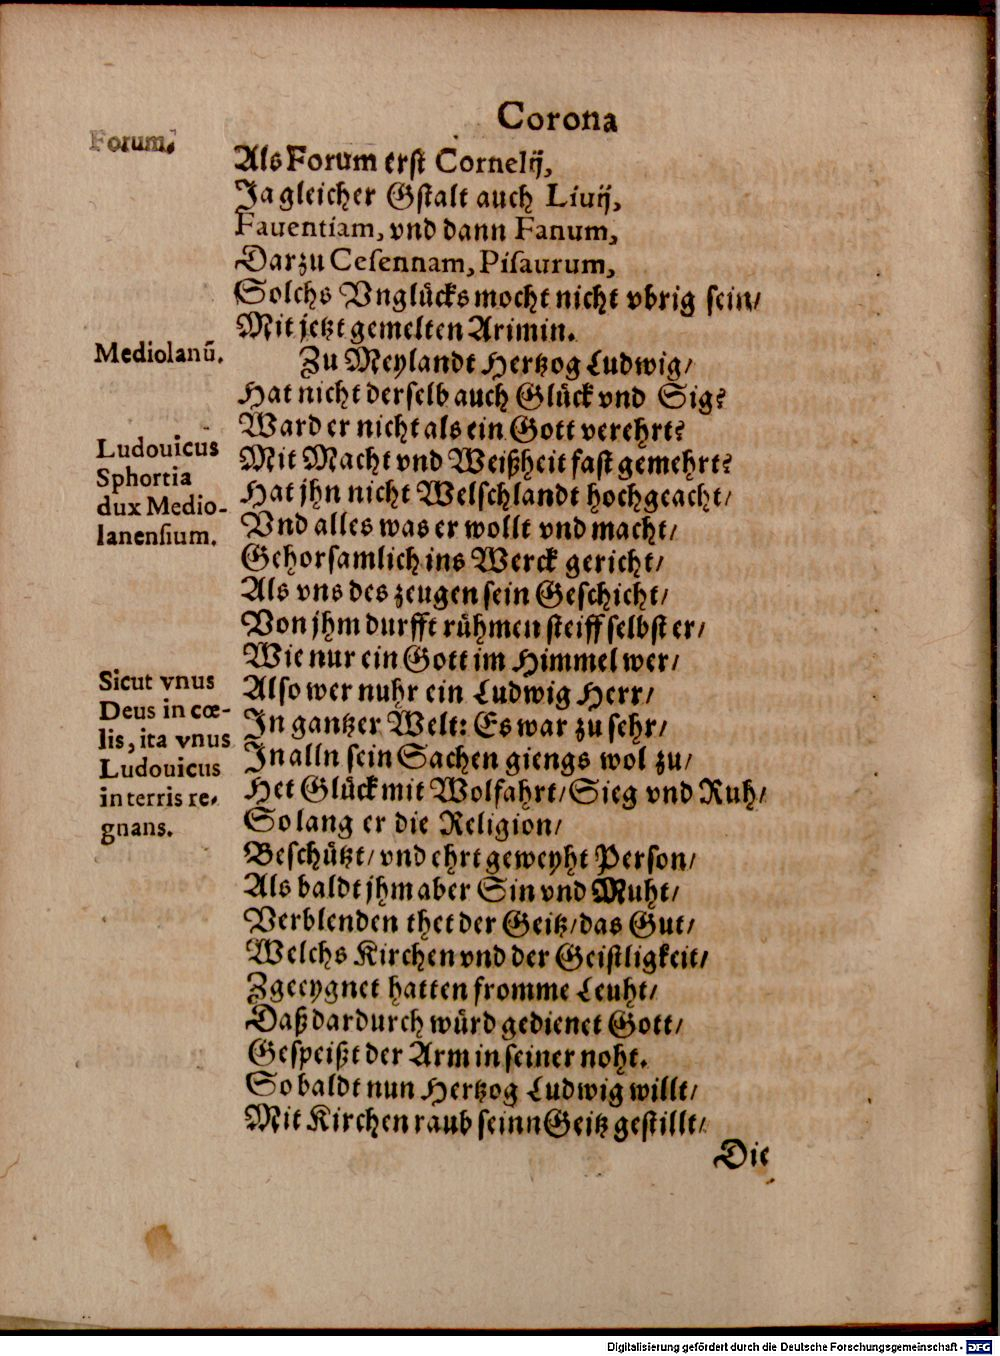 Corona
Forum.
Als Forum erst Cornelĳ,
Ja gleicher Gstalt auch Liuĳ,
Fauentiam, vnd dann Fanum,
Darzu Cesennam, Pisaurum,
Solchs Vnglücks mocht nicht vbrig sein/
Mit jetzt gemelten Arimin.
Mediolanū.
Zu Meylandt Hertzog Ludwig/
Hat nicht derselb auch Glück vnd Sig?
Ward er nicht als ein Gott verehrt?
Ludouicus
Sphortia
dux Medio-
lanensium.
Mit Macht vnd Weißheit fast gemehrt?
Hat jhn nicht Welschlandt hochgeacht/
Vnd alles was er wollt vnd macht/
Gehorsamlich ins Werck gericht/
Als vns des zeugen sein Geschicht/
Von jhm durfft rühmen steiff selbst er/
Wie nur ein Gott im Himmel wer/
Sicut vnus
Deus in cœ-
lis, ita vnus
Ludouicus
in terris re-
gnans.
Also wer nuhr ein Ludwig Herr/
In gantzer Welt: Es war zu sehr/
In alln sein Sachen giengs wol zu/
Het Glück mit Wolfahrt/ Sieg vnd Ruh/
So lang er die Religion/
Beschützt/ vnd ehrt geweyht Person/
Als baldt jhm aber Sin vnd Muht/
Verblenden thet der Geitz/ das Gut/
Welchs Kirchen vnd der Geistligkeit/
Zgeeygnet hatten fromme Leuht/
Daß dardurch würd gedienet Gott/
Gespeißt der Arm in seiner noht.
So baldt nun Hertzog Ludwig willt/
Mit Kirchen raub seinn Geitz gestillt/
Die
Digitalisierung gefördert durch die Deutsche Forschungsgemeinschaft - DFG